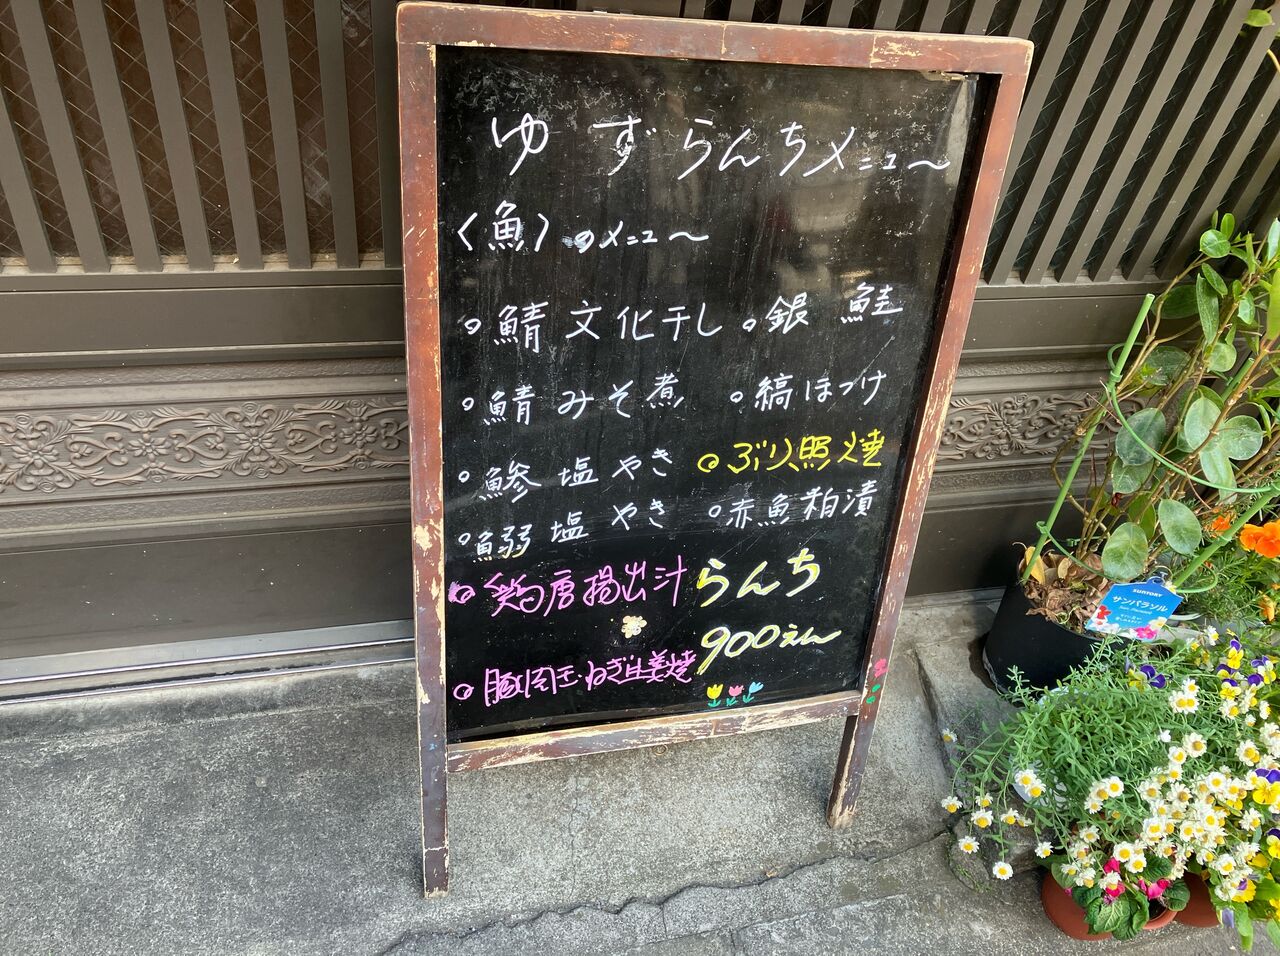 ゆずらんちメニュ〜
〈魚〉のメニュ〜
鯖文化干し
銀鮭
鯖みそ煮
縞ほっけ
鯵塩やき
ぶり照焼
鰯塩やき
赤魚粕漬
鶏唐揚出汁
らんち
900えん
豚肉玉ねぎ生姜焼
SUNTORY
サンパラソル